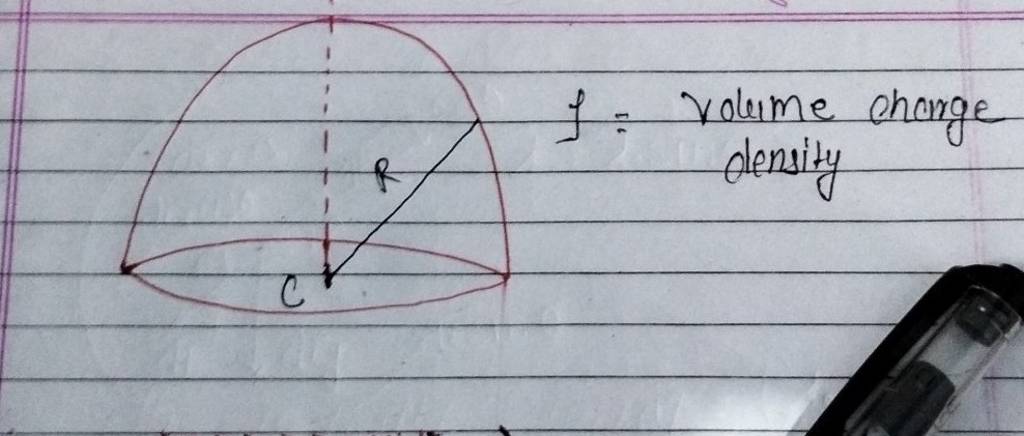 R
C
f = volume charge
density